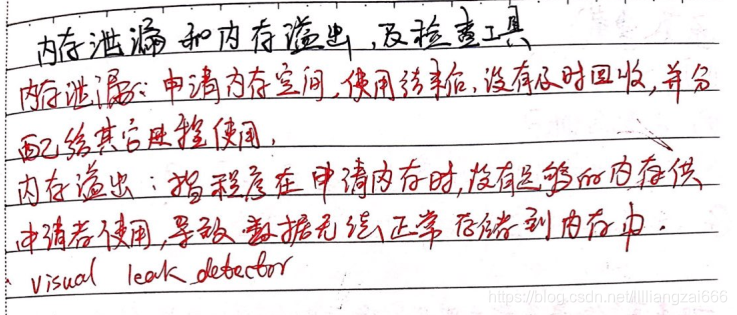 内存泄漏和内存溢出,及检查工具
内存泄漏:申请内存空间,使用结束后,没有及时回收,并分
配给其它进程使用.
内存溢出:指程序在申请内存时,没有足够的内存供
申请者使用,导致数据无法正常存储到内存中.
visual leak detector
https://blog.csdn.net/lllliangzai666